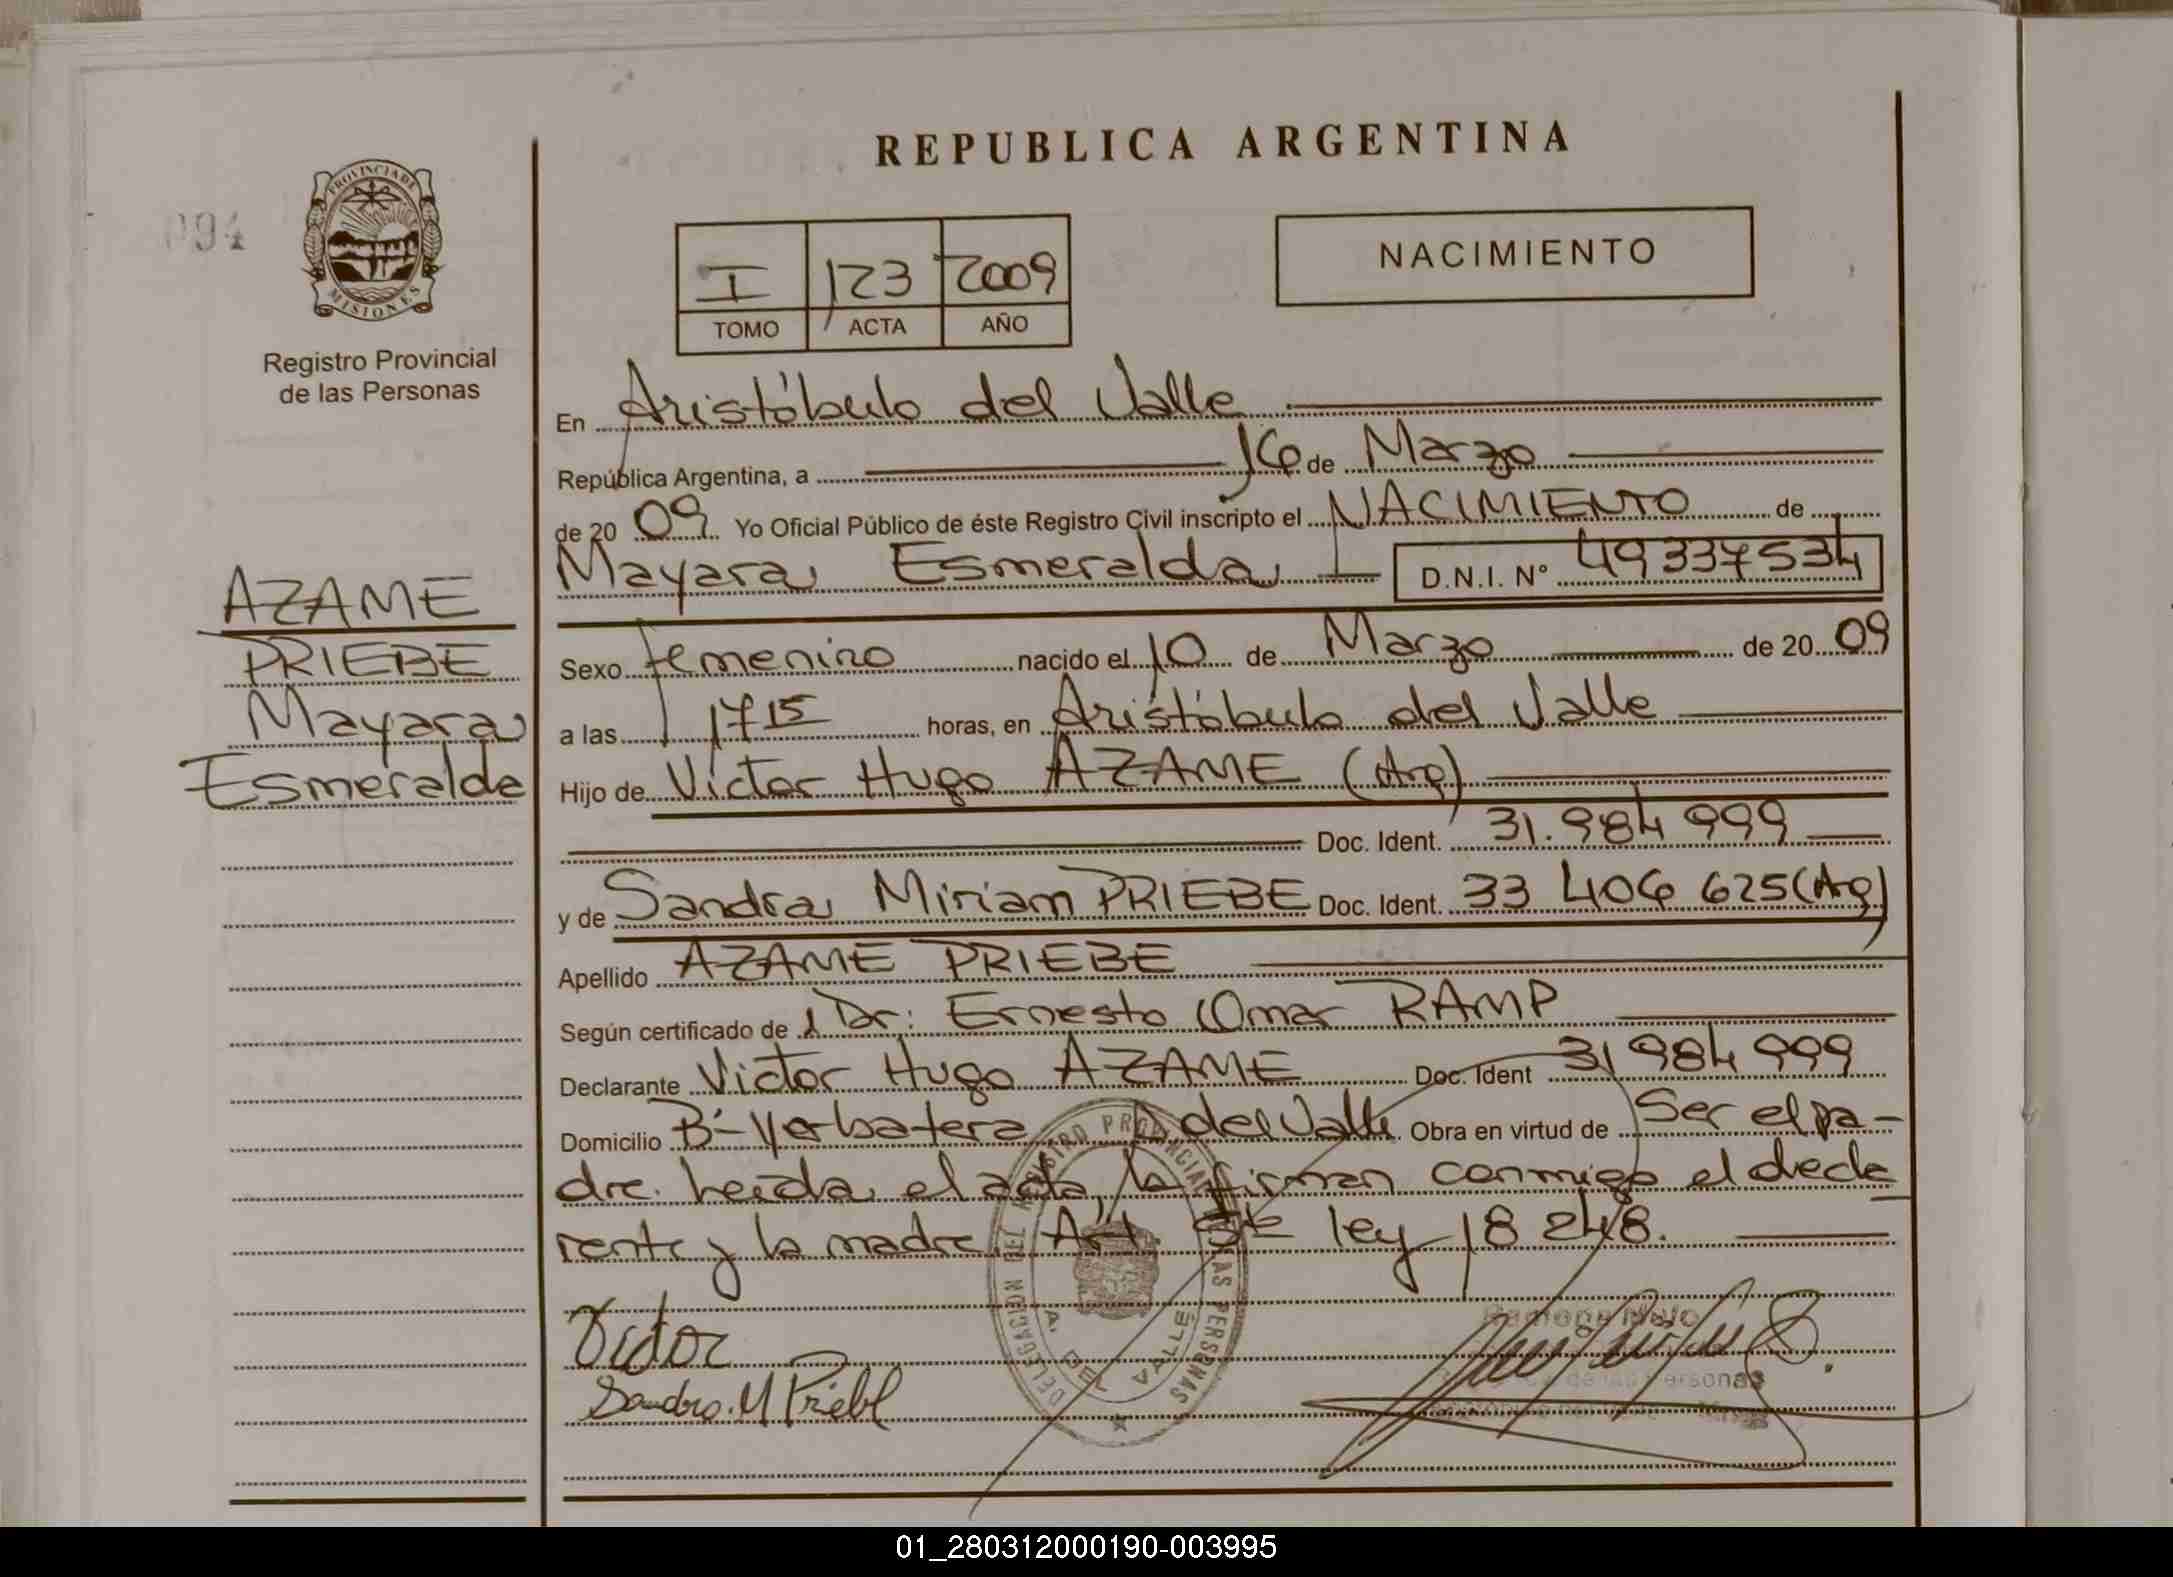 REPUBLICA ARGENTINA
094
PROVINCIA DE MISIONES
Registro Provincial
de las Personas
I 123 2009
TOMO ACTA AÑO
NACIMIENTO
AZAME
PRIEBE
Mayara
Esmeralda
En Aristóbulo del Valle
República Argentina, a 16 de Marzo
de 20 09 Yo Oficial Público de éste Registro Civil inscripto el NACIMIENTO de
Mayara Esmeralda D.N.I. N° 49337534
Sexo femenino nacido el 10 de Marzo de 20 09
a las 1715 horas, en Aristóbulo del Valle
Hijo de Victor Hugo AZAME (Arg)
Doc. Ident. 31.984 999
y de Sandra Miriam PRIEBE Doc. Ident. 33 406 625 (Arg)
Apellido AZAME PRIEBE
Según certificado de Dr: Ernesto Omar RAMP
Declarante Victor Hugo AZAME Doc. Ident 31 984 999
Domicilio B- Yerbatera A del Valle Obra en virtud de Ser el pa-
dre. Leída el acta, la firman conmigo el decla
rente y la madre. Art. 5to ley 18 248.
Victor
Sandra.M Priebe
DELEGACION DEL REGISTRO PROVINCIAL DE LAS PERSONAS
A. DEL VALLE
Ramona
de las Personas
01_280312000190-003995